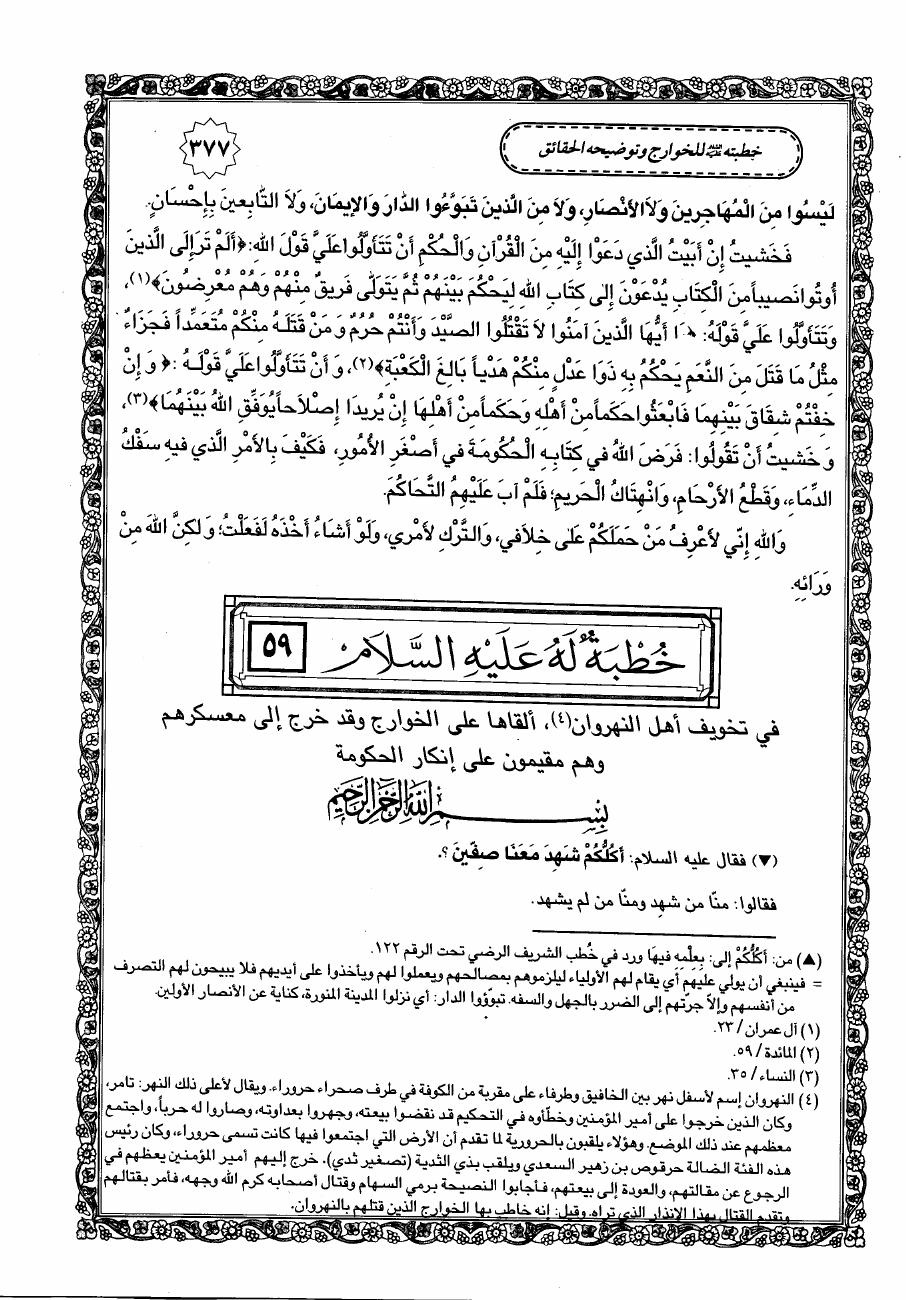 ٣٧٧
خطبته للخوارج وتوضيحه الحقائق
لَيْسُوا مِنَ الْمُهَاجِرِينَ وَلاَ الأَنْصَارِ، وَلاَ مِنَ الَّذِينَ تَبَوَّءُوا الدَّارَ وَالإِيمَانَ، وَلاَ التَّابِعِينَ بِإِحْسَانٍ.
فَخَشيتُ إِنْ أَبَيْتُ الَّذي دَعَوْا إِلَيْهِ مِنَ الْقُرْآنِ وَالْحُكْمِ أَنْ تَتَأَوَّلُوا عَلَيَّ قَوْلَ اللهِ: ﴿أَلَمْ تَرَ إِلَى الَّذينَ
أُوتُوا نَصيباً مِنَ الْكِتَابِ يُدْعَوْنَ إِلى كِتَابِ اللهِ لِيَحْكُمَ بَيْنَهُمْ ثُمَّ يَتَوَلّى فَريقٌ مِنْهُمْ وَهُمْ مُعْرِضُونَ﴾(١)،
وَتَتَأَوَّلُوا عَلَيَّ قَوْلَهُ: ﴿ا أَيُّهَا الَّذينَ آمَنُوا لاَ تَقْتُلُوا الصَّيْدَ وَأَنْتُمْ حُرُمٌ وَمَنْ قَتَلَهُ مِنْكُمْ مُتَعَمِّداً فَجَزَاءٌ
مِثْلُ مَا قَتَلَ مِنَ النَّعَمِ يَحْكُمُ بِهِ ذَوَا عَدْلٍ مِنْكُمْ هَدْياً بَالِغَ الْكَعْبَةِ﴾(٢)، وَأَنْ تَتَأَوَّلُوا عَلَيَّ قَوْلَهُ: ﴿وَإِنْ
خِفْتُمْ شِقَاقَ بَيْنِهِمَا فَابْعَثُوا حَكَماً مِنْ أَهْلِهِ وَحَكَماً مِنْ أَهْلِهَا إِنْ يُريدَا إِصْلاَحاً يُوَفِّقِ اللهُ بَيْنَهُمَا﴾(٣)،
وَخَشيتُ أَنْ تَقُولُوا: فَرَضَ اللهُ في كِتَابِهِ الْحُكُومَةَ في أَصْغَرِ الأُمُورِ، فَكَيْفَ بِالأَمْرِ الَّذي فيهِ سَفْكُ
الدِّمَاءِ، وَقَطْعُ الأَرْحَامِ، وَانْهِتَاكُ الْحَريمِ؛ فَلَمْ آبَ عَلَيْهِمُ التَّحَاكُمَ.
وَاللهِ إِنّي لأَعْرِفُ مَنْ حَمَلَكُمْ عَلى خِلاَفي، وَالتَّرْكِ لأَمْري، وَلَوْ أَشَاءُ أَخْذَهُ لَفَعَلْتُ؛ وَلكِنَّ اللهَ مِنْ
وَرَائِهِ.
خُطْبَةٌ لَهُ عَلَيْهِ السَّلَامُ
٥٩
في تخويف أهل النهروان(٤)، ألقاها على الخوارج وقد خرج إلى معسكرهم
وهم مقيمون على إنكار الحكومة
بسم الله الرحمن الرحيم
(▼) فقال عليه السلام: أَكُلُّكُمْ شَهِدَ مَعَنَا صِفّينَ؟.
فقالوا: منّا من شهد ومنّا من لم يشهد.
(▲) من: أَكُلُّكُمْ إلى: بِعِلْمِهِ فيهَا ورد في خُطب الشريف الرضي تحت الرقم ١٢٢.
= فينبغي أن يولي عليهم أي يقام لهم الأولياء ليلزموهم بمصالحهم ويعملوا لهم ويأخذوا على أيديهم فلا يبيحون لهم التصرف
من أنفسهم وإلاّ جرّتهم إلى الضرر بالجهل والسفه. تبوّؤوا الدار: أي نزلوا المدينة المنورة، كناية عن الأنصار الأولين.
(١) آل عمران / ٢٣.
(٢) المائدة / ٥٩.
(٣) النساء / ٣٥.
(٤) النهروان إسم لأسفل نهر بين الخافيق وطرفاء على مقربة من الكوفة في طرف صحراء حروراء. ويقال لأعلى ذلك النهر: تامر،
وكان الذين خرجوا على أمير المؤمنين وخطّأوه في التحكيم قد نقضوا بيعته، وجهروا بعداوته، وصاروا له حرباً، واجتمع
معظمهم عند ذلك الموضع. وهؤلاء يلقبون بالحرورية لما تقدم أن الأرض التي اجتمعوا فيها كانت تسمى حروراء، وكان رئيس
هذه الفئة الضالة حرقوص بن زهير السعدي ويلقب بذي الثدية (تصغير ثدي). خرج إليهم أمير المؤمنين يعظهم في
الرجوع عن مقالتهم، والعودة إلى بيعتهم، فأجابوا النصيحة برمي السهام وقتال أصحابه كرم الله وجهه، فأمر بقتالهم
وتقدم القتال بهذا الإنذار الذي تراه. وقيل: إنه خاطب بها الخوارج الذين قتلهم بالنهروان.